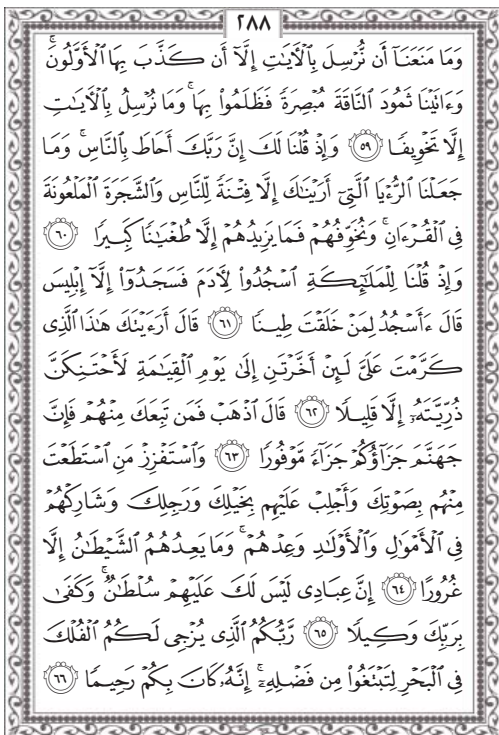 ٢٨٨
وَمَا مَنَعَنَآ أَن نُّرْسِلَ بِٱلْءَايَٰتِ إِلَّآ أَن كَذَّبَ بِهَا ٱلْأَوَّلُونَۚ
وَءَاتَيْنَا ثَمُودَ ٱلنَّاقَةَ مُبْصِرَةً فَظَلَمُوا۟ بِهَاۚ وَمَا نُرْسِلُ بِٱلْءَايَٰتِ
إِلَّا تَخْوِيفًا ٥٩ وَإِذْ قُلْنَا لَكَ إِنَّ رَبَّكَ أَحَاطَ بِٱلنَّاسِۚ وَمَا
جَعَلْنَا ٱلرُّءْيَا ٱلَّتِىٓ أَرَيْنَٰكَ إِلَّا فِتْنَةً لِّلنَّاسِ وَٱلشَّجَرَةَ ٱلْمَلْعُونَةَ
فِى ٱلْقُرْءَانِۚ وَنُخَوِّفُهُمْ فَمَا يَزِيدُهُمْ إِلَّا طُغْيَٰنًا كَبِيرًا ٦٠
وَإِذْ قُلْنَا لِلْمَلَٰٓئِكَةِ ٱسْجُدُوا۟ لِءَادَمَ فَسَجَدُوٓا۟ إِلَّآ إِبْلِيسَ
قَالَ ءَأَسْجُدُ لِمَنْ خَلَقْتَ طِينًا ٦١ قَالَ أَرَءَيْتَكَ هَٰذَا ٱلَّذِى
كَرَّمْتَ عَلَىَّ لَئِنْ أَخَّرْتَنِ إِلَىٰ يَوْمِ ٱلْقِيَٰمَةِ لَأَحْتَنِكَنَّ
ذُرِّيَّتَهُۥٓ إِلَّا قَلِيلًا ٦٢ قَالَ ٱذْهَبْ فَمَن تَبِعَكَ مِنْهُمْ فَإِنَّ
جَهَنَّمَ جَزَآؤُكُمْ جَزَآءً مَّوْفُورًا ٦٣ وَٱسْتَفْزِزْ مَنِ ٱسْتَطَعْتَ
مِنْهُم بِصَوْتِكَ وَأَجْلِبْ عَلَيْهِم بِخَيْلِكَ وَرَجِلِكَ وَشَارِكْهُمْ
فِى ٱلْأَمْوَٰلِ وَٱلْأَوْلَٰدِ وَعِدْهُمْۚ وَمَا يَعِدُهُمُ ٱلشَّيْطَٰنُ إِلَّا
غُرُورًا ٦٤ إِنَّ عِبَادِى لَيْسَ لَكَ عَلَيْهِمْ سُلْطَٰنٌۚ وَكَفَىٰ
بِرَبِّكَ وَكِيلًا ٦٥ رَّبُّكُمُ ٱلَّذِى يُزْجِى لَكُمُ ٱلْفُلْكَ
فِى ٱلْبَحْرِ لِتَبْتَغُوا۟ مِن فَضْلِهِۦٓۚ إِنَّهُۥ كَانَ بِكُمْ رَحِيمًا ٦٦